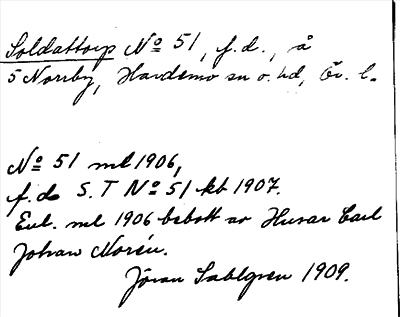 Soldattorp No 51, f.d., å
5 Norrby, Hardemo sn o. hd, Ör. l.
No 51 ml 1906,
f.d. S.T No 51 kb 1907.
Enl. ml 1906 bebott av Husar Carl
Johan Norén.
Jöran Sahlgren 1909.